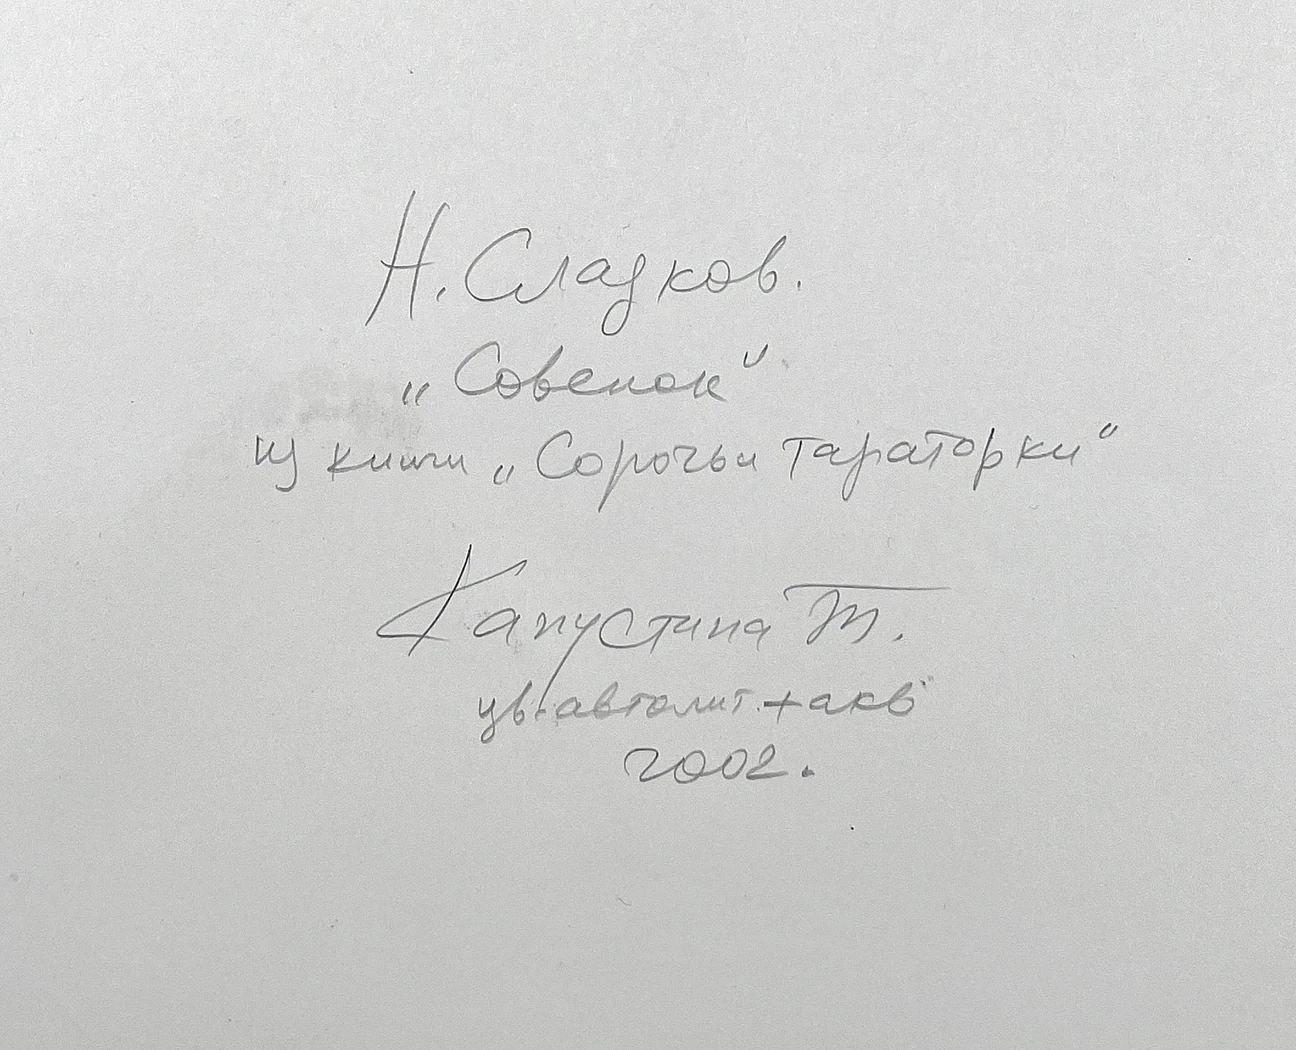 Н. Сладков.
„Совенок"
из книги „Сорочьи тараторки"
Капустина Т.
цв. автолит. + акв.
2002.